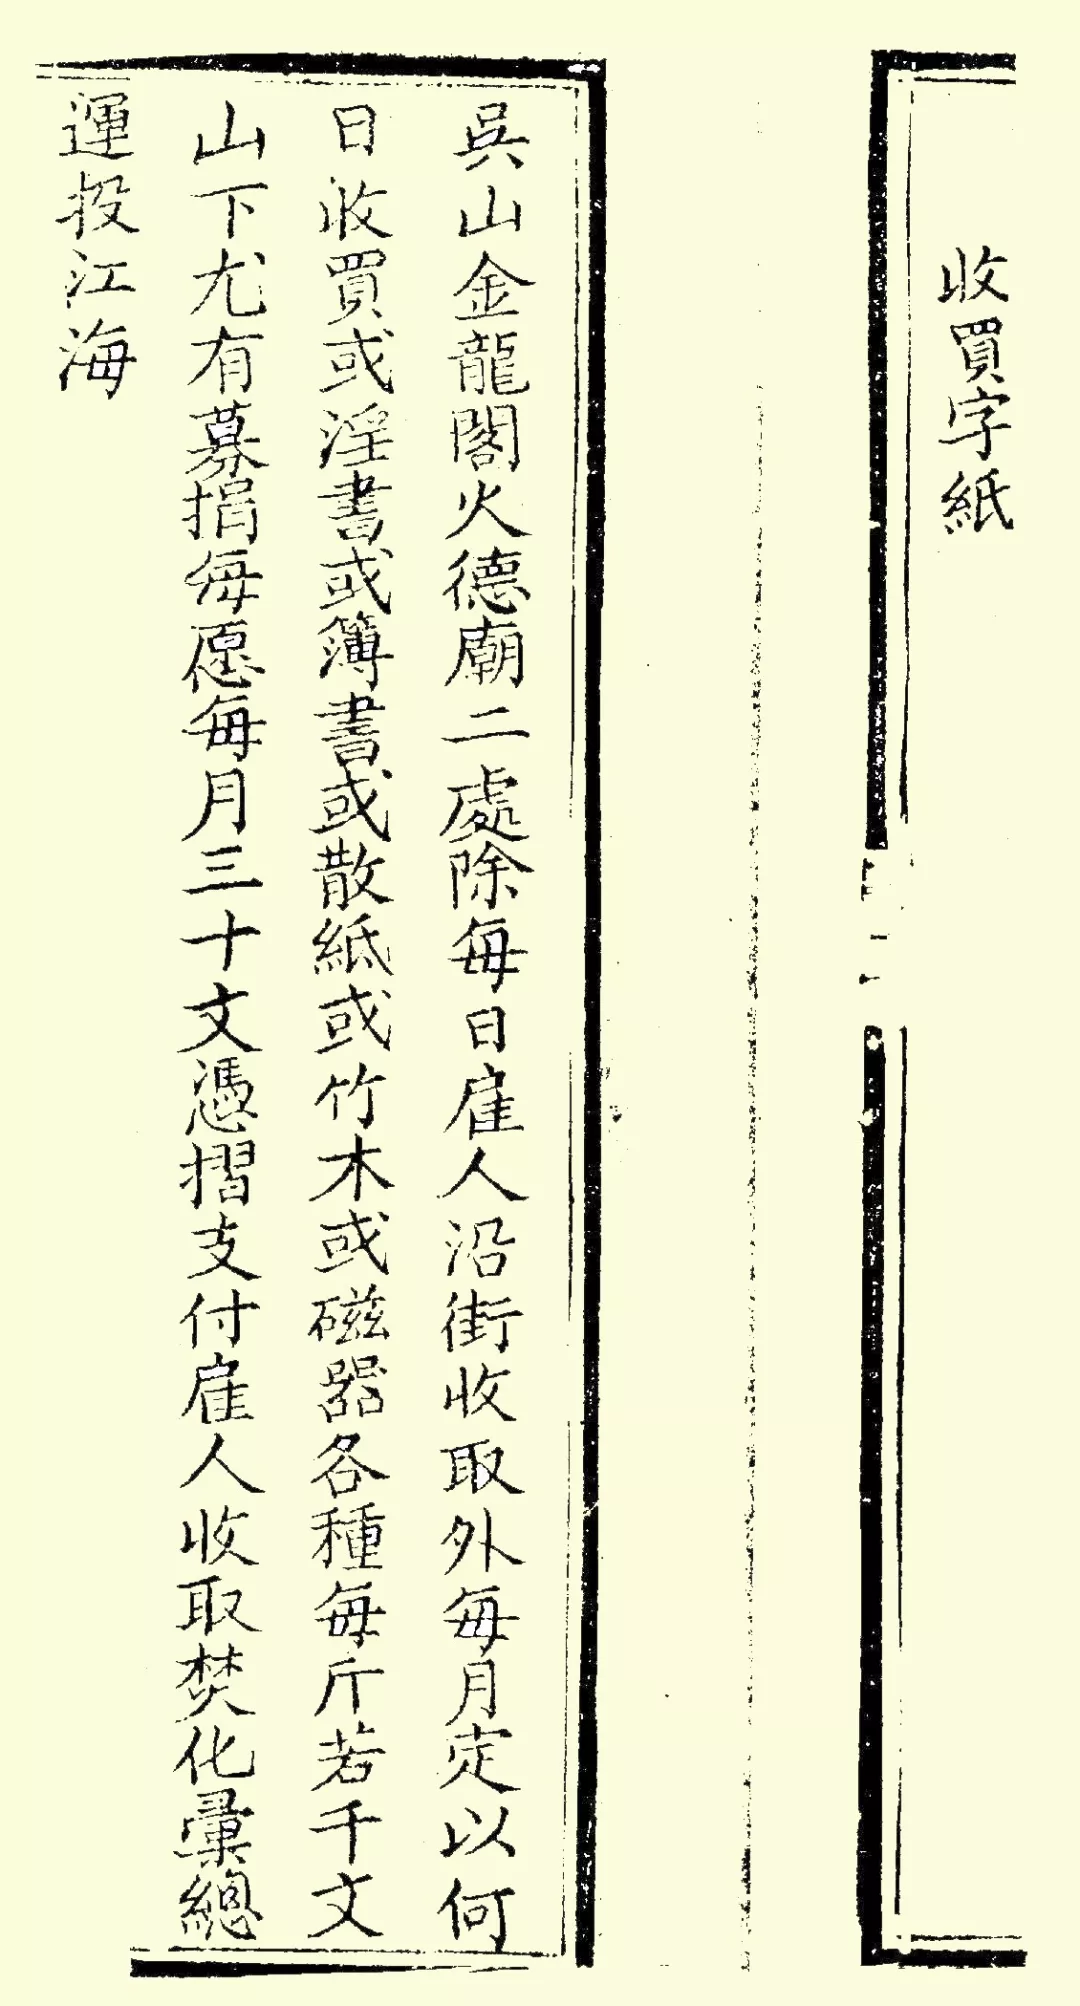 收買字紙
吳山金龍閣火德廟二處除每日雇人沿街收取外每月定以何
日收買或淫書或簿書或散紙或竹木或磁器各種每斤若干文
山下尤有募捐每愿每月三十文憑摺支付雇人收取焚化彙總
運投江海